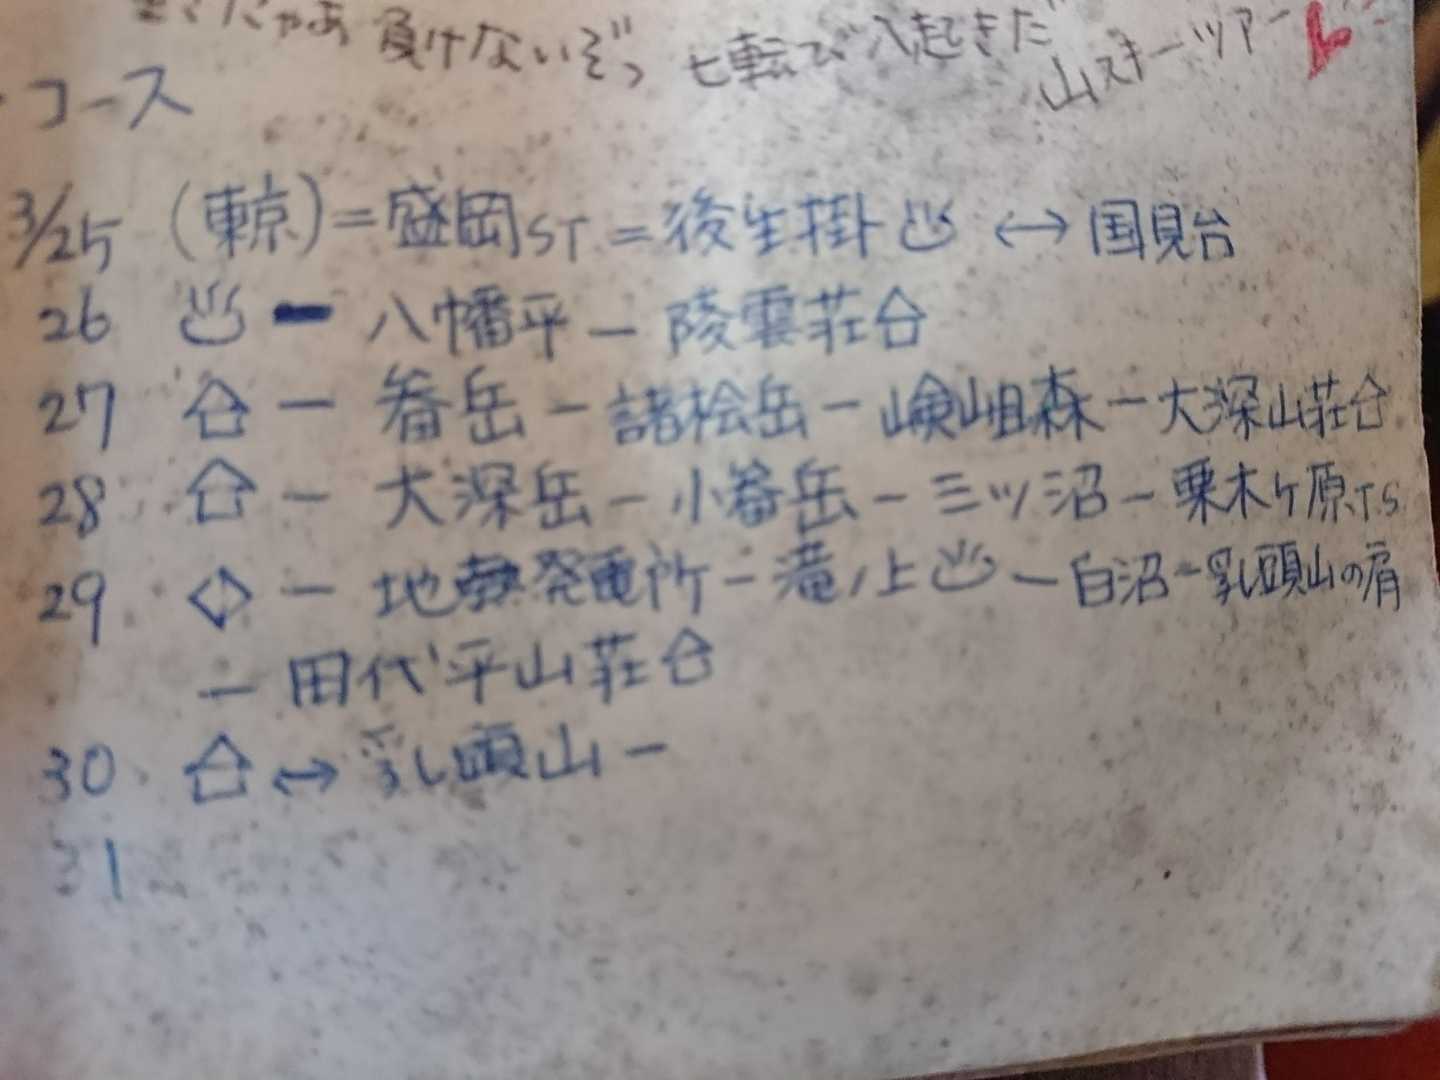 負けないぞっ 七転び八起きだ
山スキーツアー
・コース
3/25 (東京)=盛岡ST=後生掛♨↔国見台
26 ♨ー八幡平ー陵雲荘⌂
27 ⌂ー畚岳ー諸桧岳ー嶮岨森ー大深山荘⌂
28 ⌂ー大深岳ー小畚岳ー三ツ沼ー栗木ヶ原T.S
29 ◇ー地熱発電所ー滝ノ上♨ー白沼ー乳頭山の肩
ー田代平山荘⌂
30 ⌂↔乳頭山ー
31